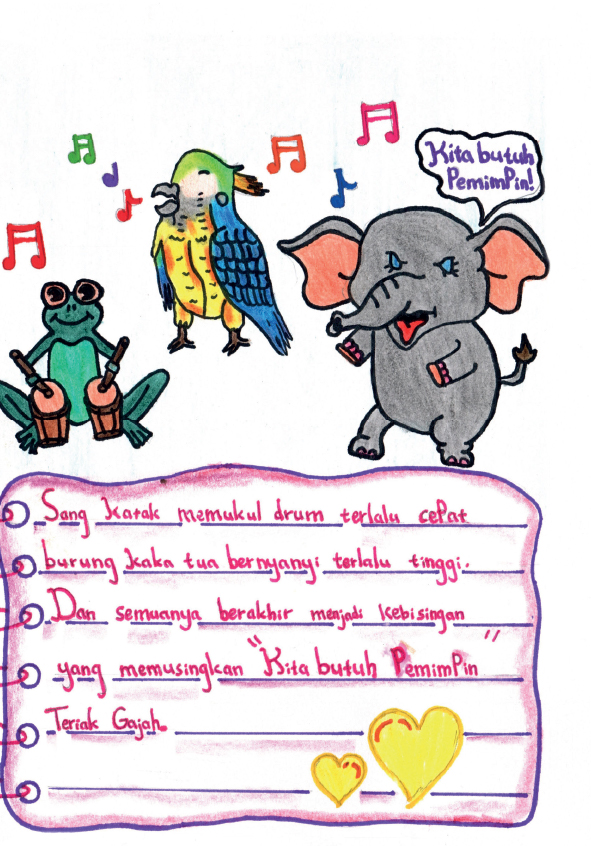 Kita butuh
PemimPin!
Sang Katak memukul drum terlalu cePat
burung kaka tua bernyanyi terlalu tinggi.
Dan semuanya berakhir menjadi Kebisingan
yang memusingkan "Kita butuh PemimPin"
Teriak Gajah.